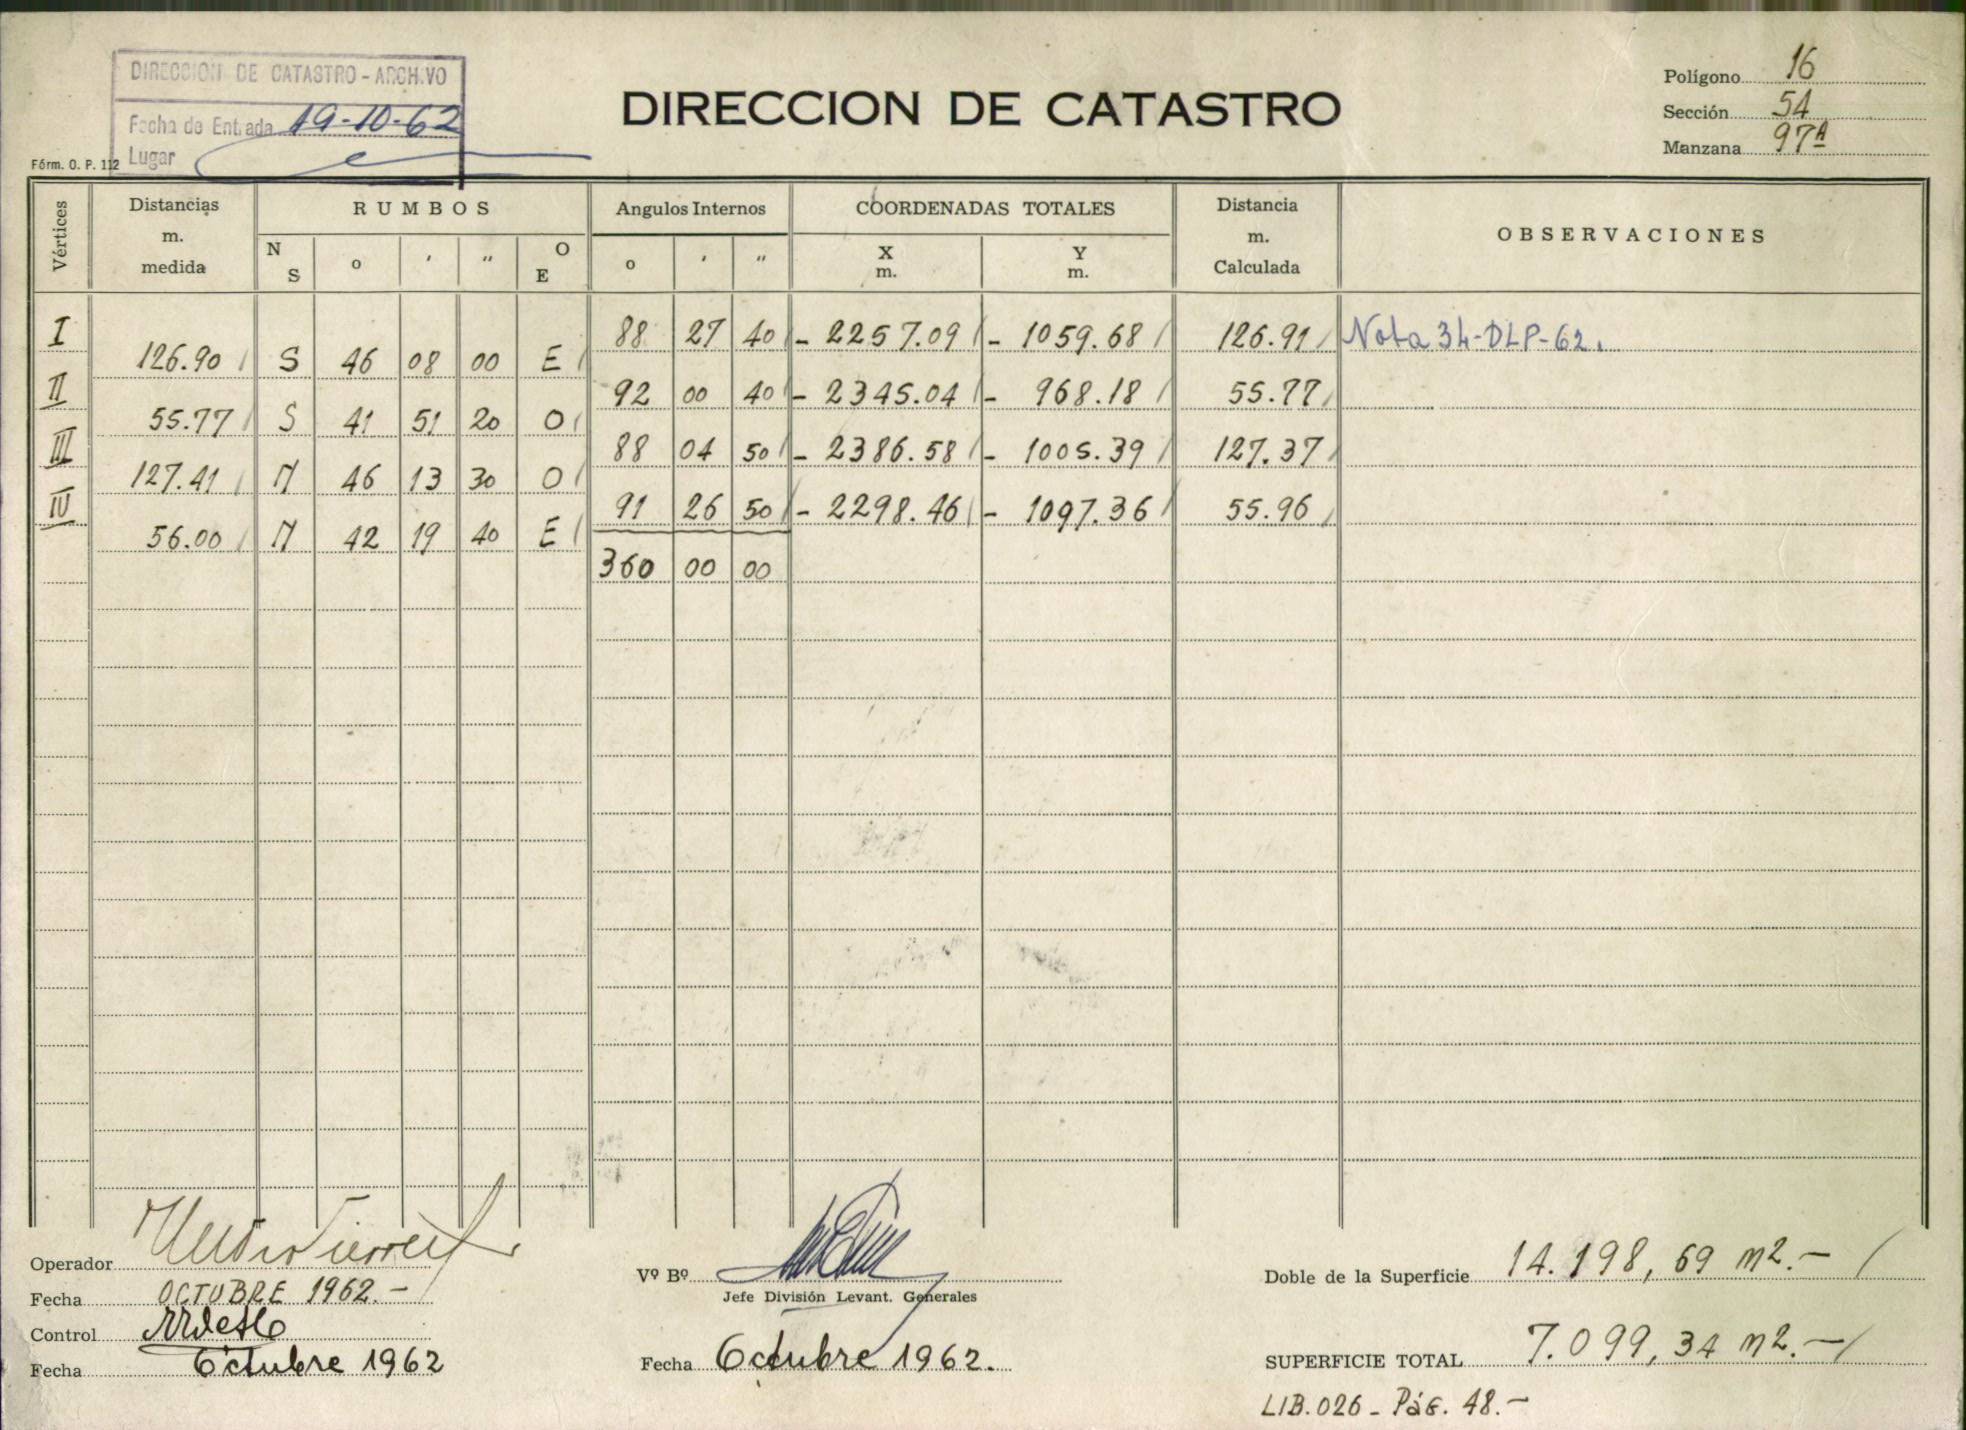 DIRECCION DE CATASTRO - ARCHIVO
Fecha de Entrada 19-10-62
Lugar
Fórm. O. P. 112
DIRECCION DE CATASTRO
Polígono 16
Sección 54
Manzana 97A
Vértices
Distancias m. medida
RUMBOS
N S o ' " O E
Angulos Internos
o ' "
COORDENADAS TOTALES
X m. Y m.
Distancia m. Calculada
OBSERVACIONES
I 88 27 40 - 2257.09 - 1059.68 126.91 Nota 34-DLP-62.
126.90 S 46 08 00 E
II 92 00 40 - 2345.04 - 968.18 55.77
55.77 S 41 51 20 O
III 88 04 50 - 2386.58 - 1005.39 127.37
127.41 N 46 13 30 O
IV 91 26 50 - 2298.46 - 1097.36 55.96
56.00 N 42 19 40 E
360 00 00
Operador
Fecha OCTUBRE 1962.-
Control
Fecha Octubre 1962
Vº Bº
Jefe División Levant. Generales
Fecha Octubre 1962.
Doble de la Superficie 14.198,69 m2.-
SUPERFICIE TOTAL 7.099,34 m2.-
LIB.026 - PáG. 48.-